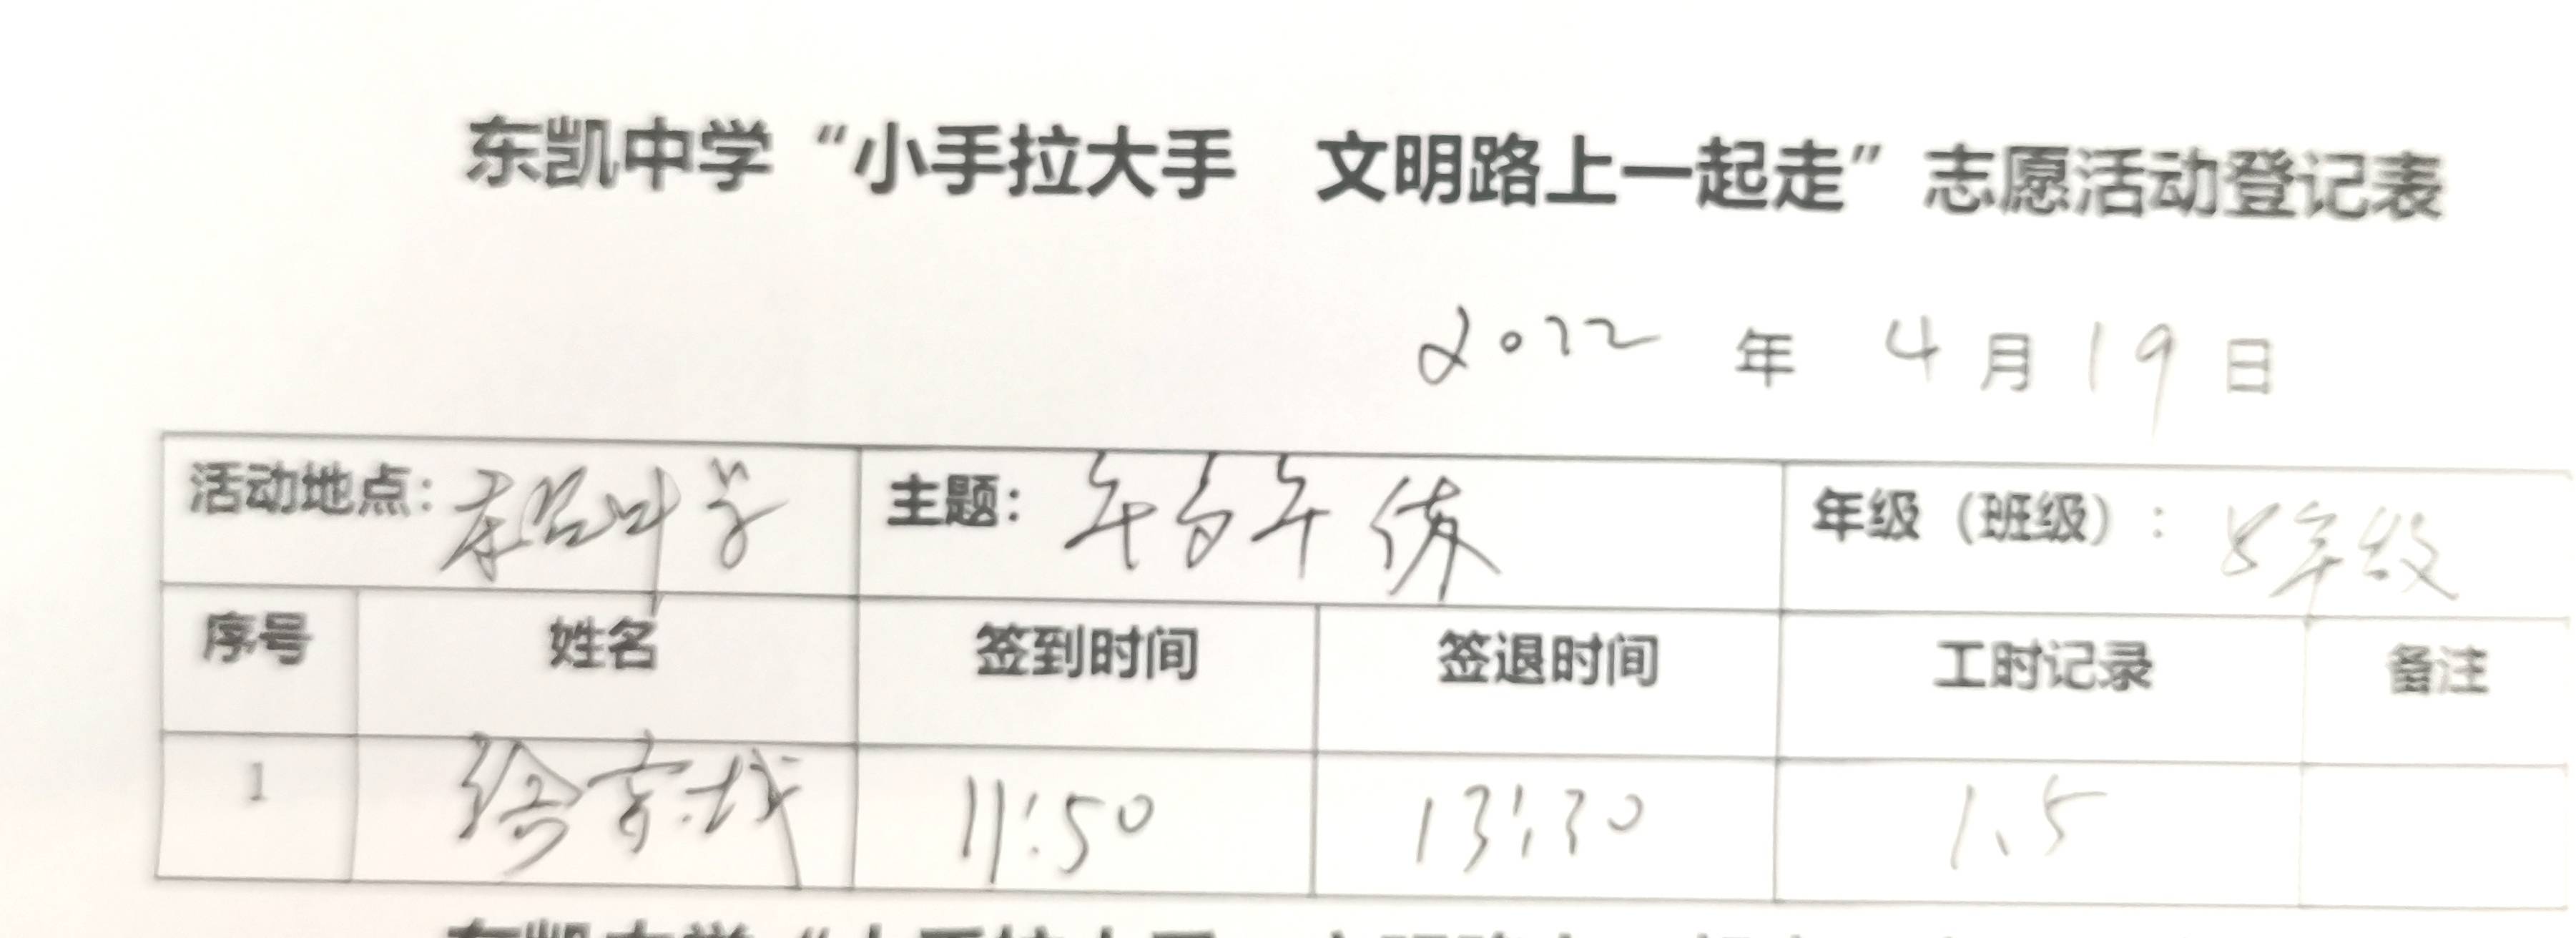 东凯中学“小手拉大手 文明路上一起走”志愿活动登记表
2022 年 4 月 19 日
活动地点： 中学 主题： 午 午练 年级（班级）：8年级
序号 姓名 签到时间 签退时间 工时记录 备注
1 11:50 13:30 1.5
东凯中学“小手拉大手